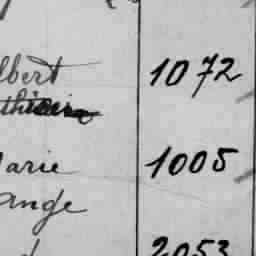 lbert 1072
arie 1005
ange
2053